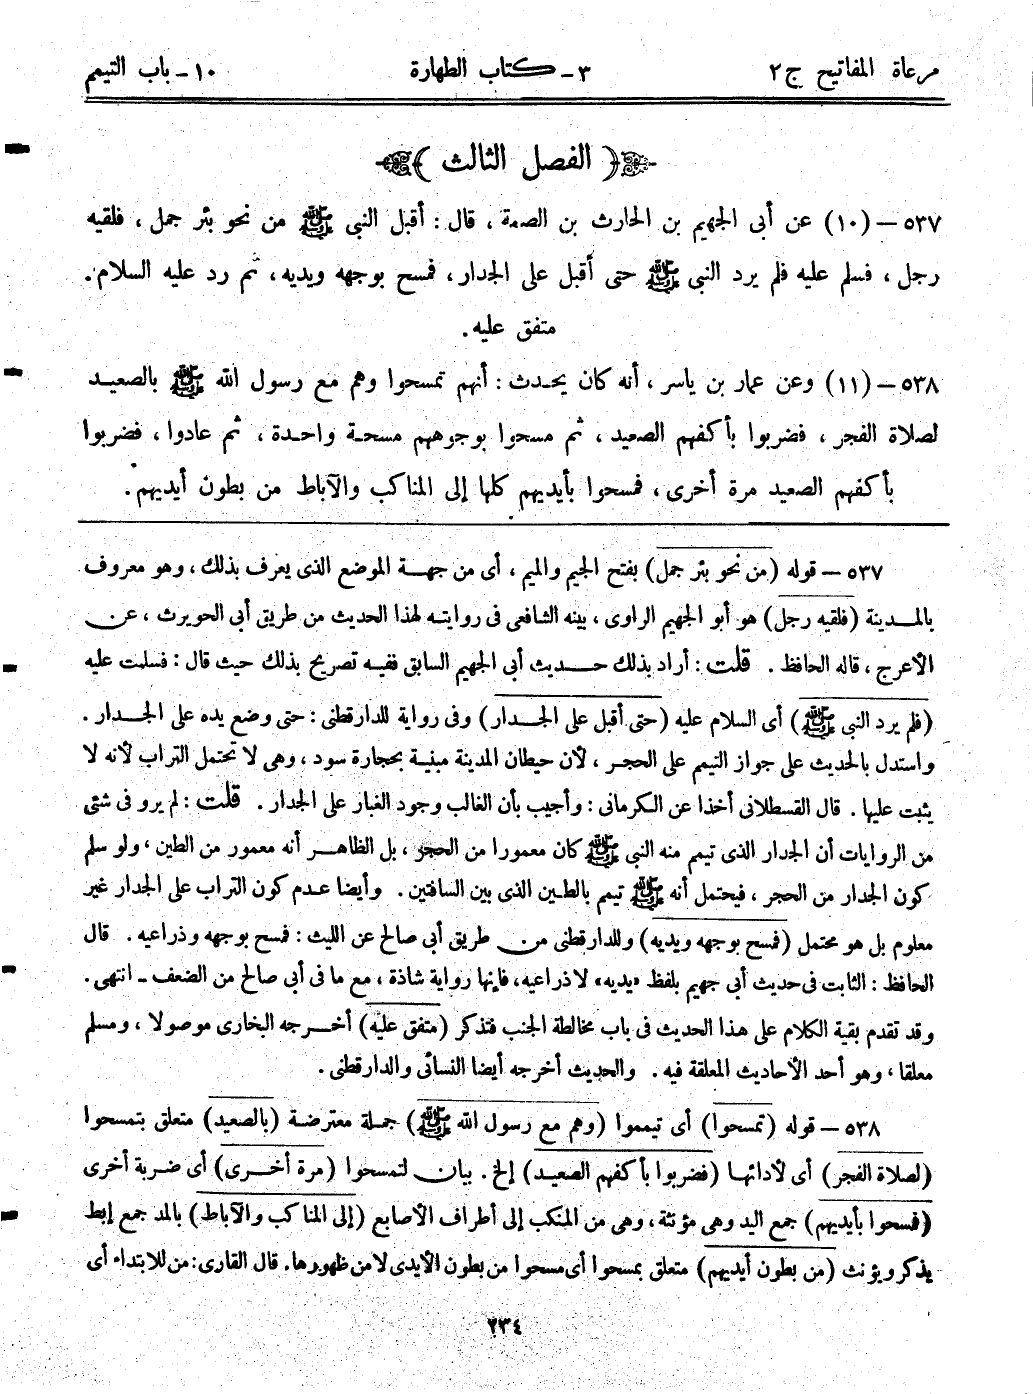 مرعاة المفاتيح ج٢ ٣- كتاب الطهارة ١٠- باب التيمم
( الفصل الثالث )
٥٣٧ – (١٠) عن أبى الجهيم بن الحارث بن الصمة ، قال : أقبل النبى ﷺ من نحو بئر جمل ، فلقيه
رجل ، فسلم عليه فلم يرد النبى ﷺ حتى أقبل على الجدار ، فمسح بوجهه ويديه ، ثم رد عليه السلام .
متفق عليه .
٥٣٨ – (١١) وعن عمار بن ياسر ، أنه كان يحدث : أنهم تمسحوا وهم مع رسول الله ﷺ بالصعيد
لصلاة الفجر ، فضربوا بأكفهم الصعيد ، ثم مسحوا بوجوههم مسحة واحدة ، ثم عادوا ، فضربوا
بأكفهم الصعيد مرة أخرى ، فمسحوا بأيديهم كلها إلى المناكب والآباط من بطون أيديهم .
٥٣٧ – قوله (من نحو بئر جمل) بفتح الجيم والميم ، أى من جهة الموضع الذى يعرف بذلك ، وهو معروف
بالمدينة (فلقيه رجل) هو أبو الجهيم الراوى ، بينه الشافعى فى روايته لهذا الحديث من طريق أبى الحويرث ، عن
الأعرج ، قاله الحافظ . قلت : أراد بذلك حديث أبى الجهيم السابق ففيه تصريح بذلك حيث قال : فسلمت عليه
(فلم يرد النبى ﷺ) أى السلام عليه (حتى أقبل على الجدار) وفى رواية للدارقطنى : حتى وضع يده على الجدار .
واستدل بالحديث على جواز التيمم على الحجر ، لأن حيطان المدينة مبنية بحجارة سود ، وهى لا تحتمل التراب لأنه لا
يثبت عليها . قال القسطلانى أخذا عن الكرمانى : وأجيب بأن الغالب وجود الغبار على الجدار . قلت : لم يرو فى شئى
من الروايات أن الجدار الذى تيمم منه النبى ﷺ كان معمورا من الحجر ، بل الظاهر أنه معمور من الطين ، ولو سلم
كون الجدار من الحجر ، فيحتمل أنه ﷺ تيمم بالطين الذى بين السافتين . وأيضا عدم كون التراب على الجدار غير
معلوم بل هو محتمل (فمسح بوجهه ويديه) وللدارقطنى من طريق أبى صالح عن الليث : فمسح بوجهه وذراعيه . قال
الحافظ : الثابت فى حديث أبى جهيم بلفظ «يديه» لا ذراعيه، فإنها رواية شاذة ، مع ما فى أبى صالح من الضعف – انتهى .
وقد تقدم بقية الكلام على هذا الحديث فى باب مخالطة الجنب فتذكر (متفق عليه) أخرجه البخارى موصولا ، ومسلم
معلقا ، وهو أحد الأحاديث المعلقة فيه . والحديث أخرجه أيضا النسائى والدارقطنى .
٥٣٨ – قوله (تمسحوا) أى تيمموا (وهم مع رسول الله ﷺ) جملة معترضة (بالصعيد) متعلق بتمسحوا
(لصلاة الفجر) أى لأدائها (فضربوا بأكفهم الصعيد) إلخ . بيان لتمسحوا (مرة أخرى) أى ضربة أخرى
(فمسحوا بأيديهم) جمع اليد وهى مؤنثة ، وهى من المنكب إلى أطراف الأصابع (إلى المناكب والآباط) بالمد جمع إبط
يذكر ويؤنث (من بطون أيديهم) متعلق بمسحوا أى مسحوا من بطون الأيدى لا من ظهورها. قال القارى: من للابتداء أى
٢٣٤